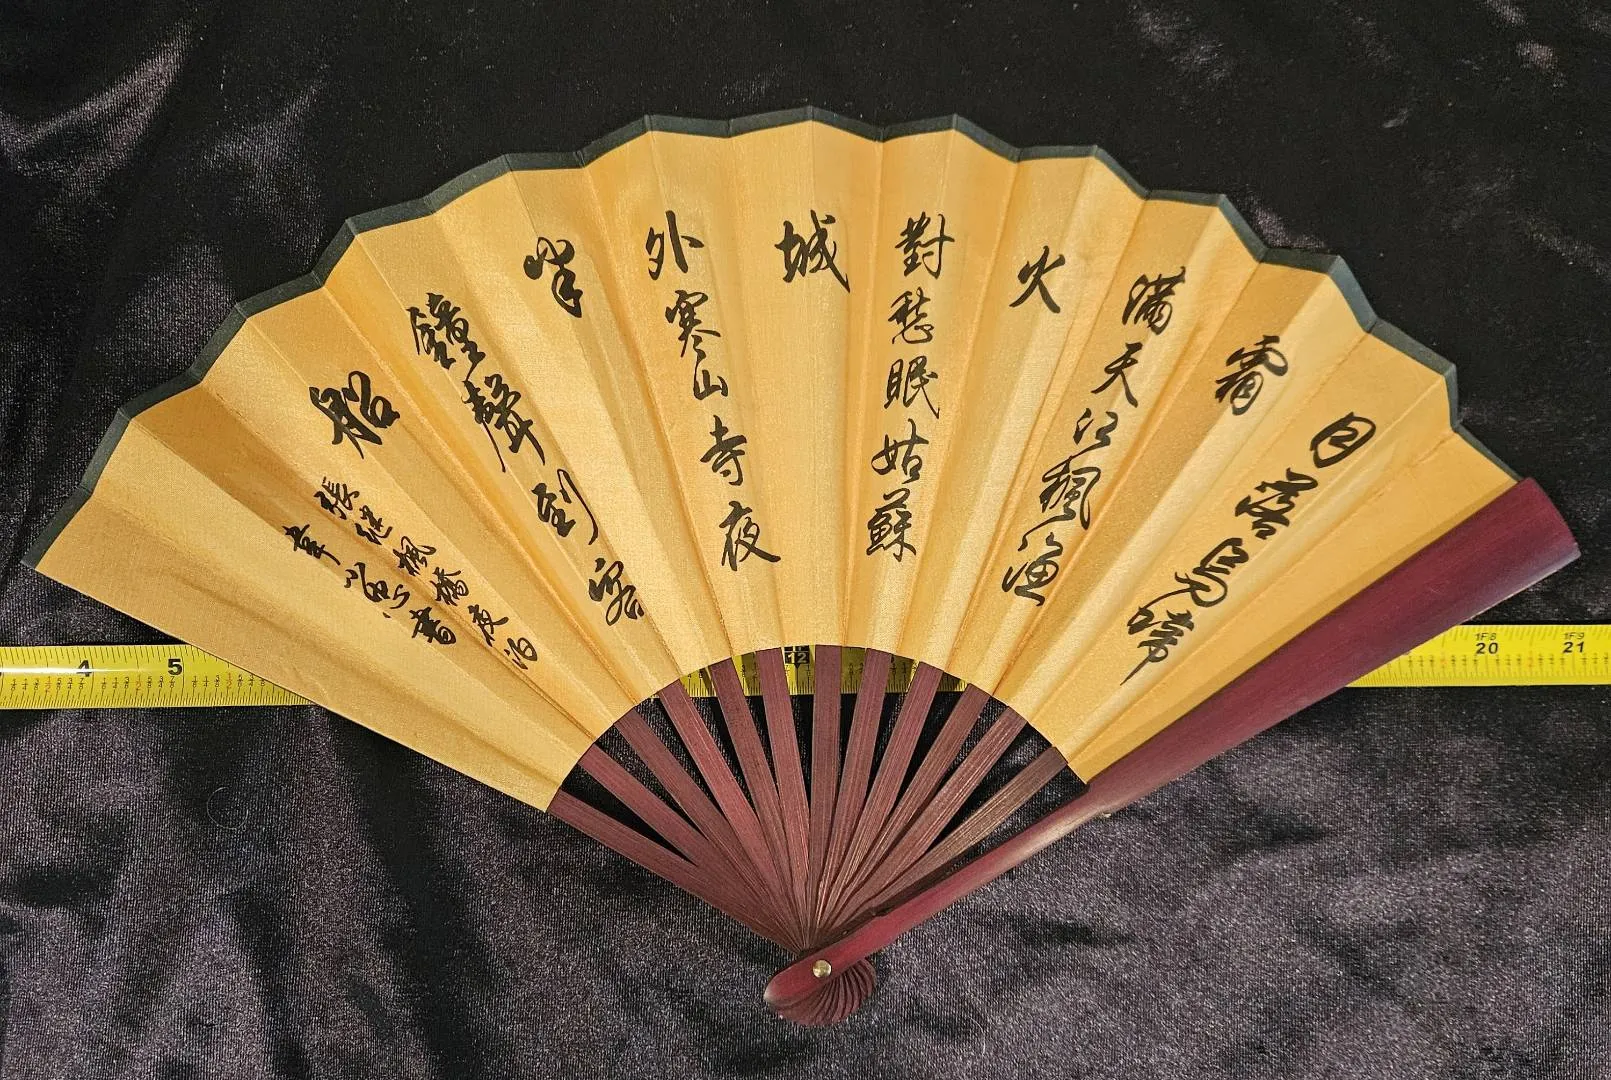 日落烏啼
霜
滿天江楓漁
火
對愁眠姑蘇
城
外寒山寺夜
半
鐘聲到客
船
張繼楓橋夜泊
書
4 5 12
1F8 1F9
20 21